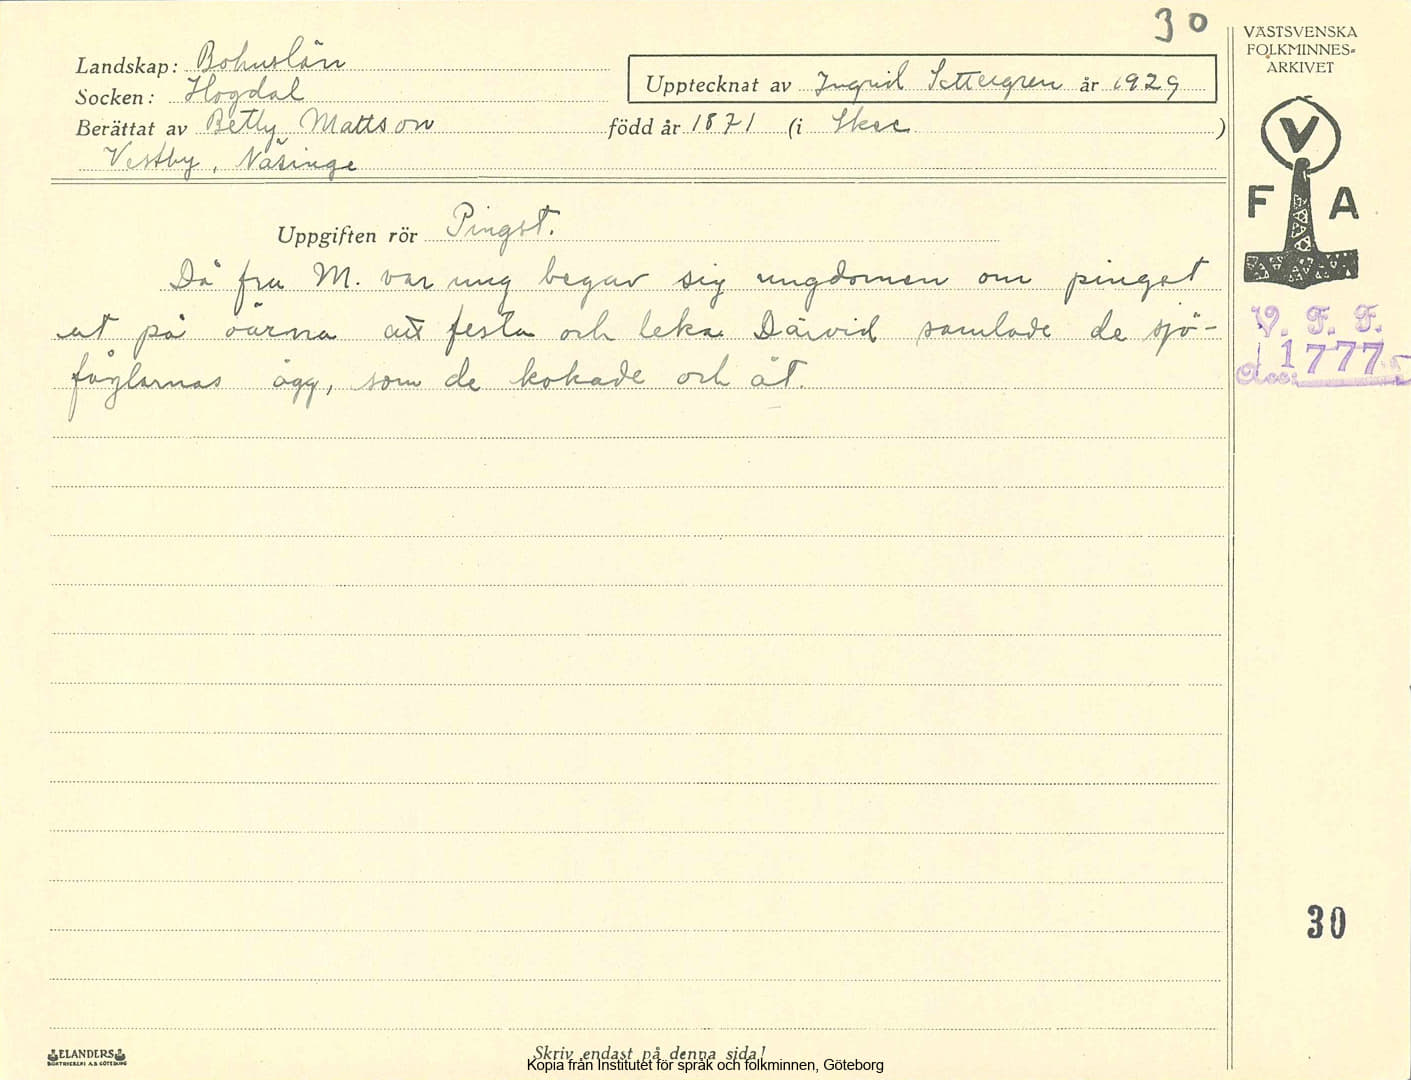 30
VÄSTSVENSKA
FOLKMINNES=
ARKIVET
Landskap: Bohuslän
Socken: Hogdal
Upptecknat av Ingrid Settergren år 1929
Berättat av Betty Mattson född år 1871 (i Skee)
Vestby, Näsinge
V
F A
Uppgiften rör Pingst.
Då fru M. var ung begav sig ungdomen om pingst
ut på öarna att festa och leka. Därvid samlade de sjö-
fåglarnas ägg, som de kokade och åt.
V. F. F.
Acc: 1777
30
ELANDERS
BOKTRYCKERI A.B. GÖTEBORG
Skriv endast på denna sida!
Kopia från Institutet för språk och folkminnen, Göteborg